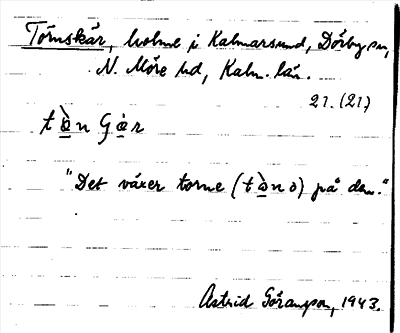 Törnskär, holme i Kalmarsund, Dörby sn,
N. Möre hd, Kalm. län.
21. (21)
tὰ̱n Gα̱̇r
"Det växer torne (tὰ̱no) på den."
Astrid Göransson, 1943.